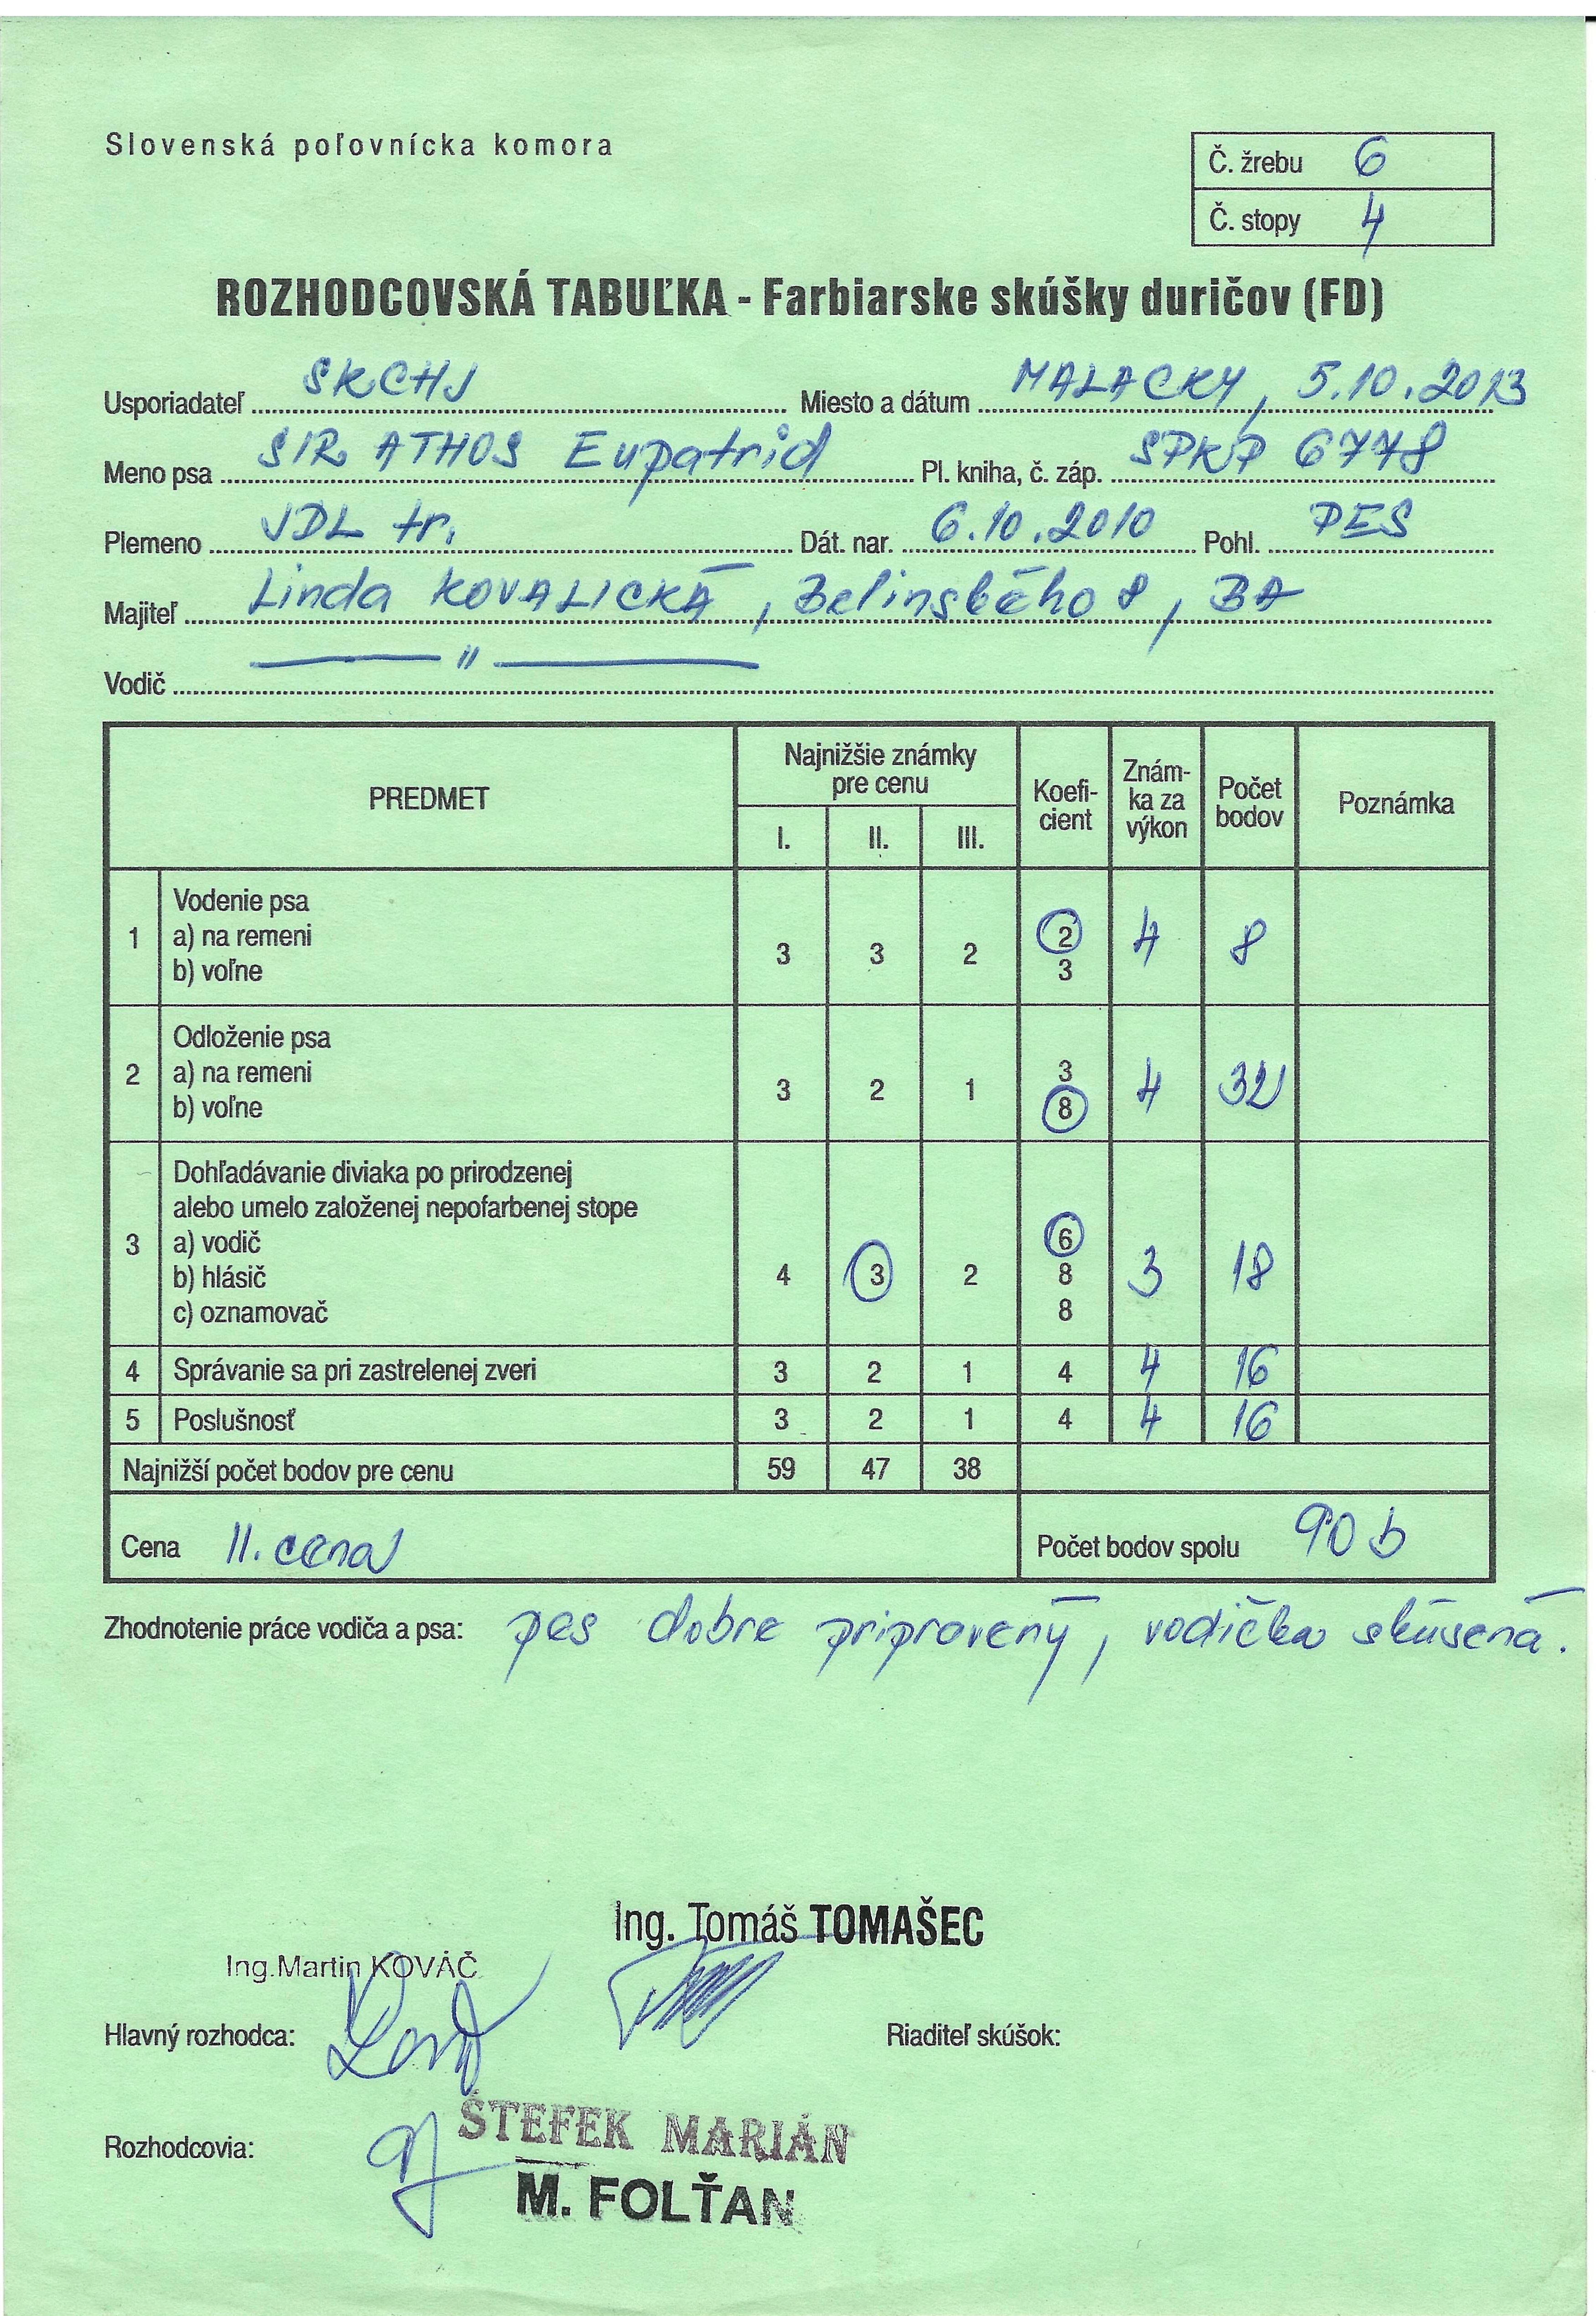 Slovenská poľovnícka komora
Č. žrebu 6
Č. stopy 4
ROZHODCOVSKÁ TABUĽKA - Farbiarske skúšky duričov (FD)
Usporiadateľ SKCHJ Miesto a dátum MALACKY, 5.10.2013
Meno psa SIR ATHOS Eupatrid Pl. kniha, č. záp. SPKP 6778
Plemeno JDL tr. Dát. nar. 6.10.2010 Pohl. PES
Majiteľ Linda KOVALICKÁ, Belinského 8, BA
Vodič — " —
PREDMET Najnižšie známky pre cenu Koefi-cient Znám-ka za výkon Počet bodov Poznámka
I. II. III.
1 Vodenie psa
a) na remeni 2
b) voľne 3 3 2 3 4 8
2 Odloženie psa
a) na remeni 3
b) voľne 3 2 1 8 4 32
3 Dohľadávanie diviaka po prirodzenej
alebo umelo založenej nepofarbenej stope
a) vodič 6
b) hlásič 4 3 2 8 3 18
c) oznamovač 8
4 Správanie sa pri zastrelenej zveri 3 2 1 4 4 16
5 Poslušnosť 3 2 1 4 4 16
Najnižší počet bodov pre cenu 59 47 38
Cena II. cena Počet bodov spolu 90 b
Zhodnotenie práce vodiča a psa: pes dobre pripravený, vodička skúsená.
Ing. Tomáš TOMAŠEC
Ing.Martin KOVÁČ
Hlavný rozhodca: Riaditeľ skúšok:
ŠTEFEK MARIÁN
Rozhodcovia:
M. FOLŤAN